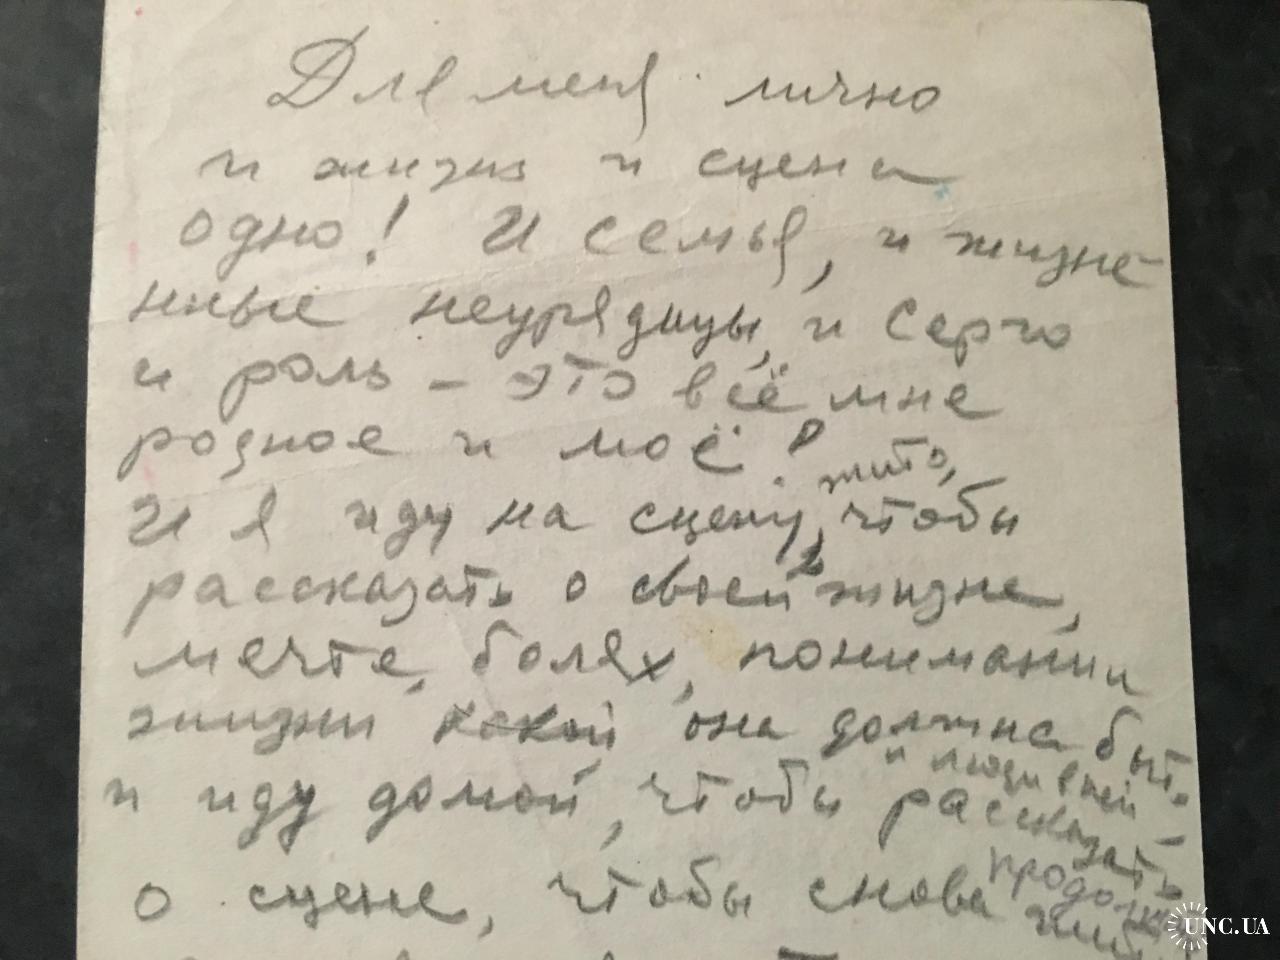 Для меня лично
и жизнь и сцена
одно! И семья, и жизне
нные неурядицы, и Серго
и роль – это всё мне
родное и моё!
жить,
И я иду на сцену, чтобы
рассказать о своей жизне,
мечте, болях, понимании
жизни какой она должна быть
и люди в ней –
и иду домой, чтобы рассказать
продолж
о сцене, чтобы снова жить
UNC.UA